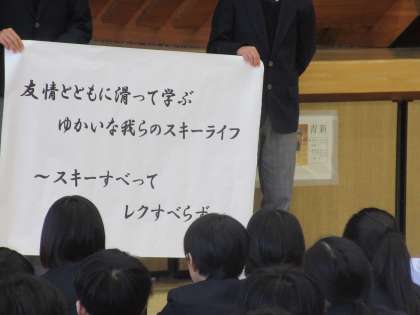 友情とともに滑って学ぶ
ゆかいな我らのスキーライフ
～スキーすべって
レクすべらず
青新